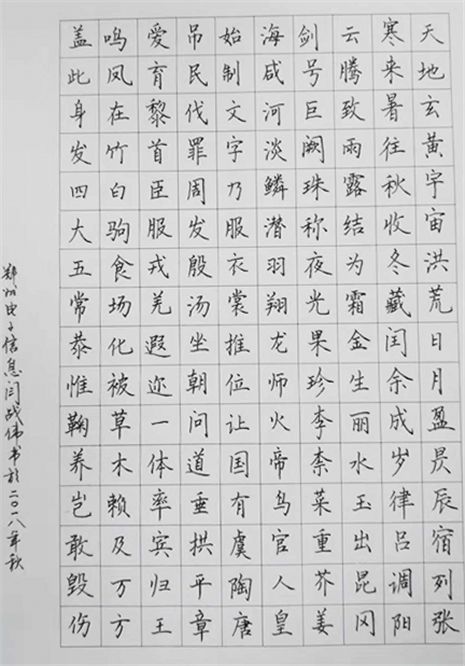 天地玄黄宇宙洪荒日月盈昃辰宿列张
寒来暑往秋收冬藏闰余成岁律吕调阳
云腾致雨露结为霜金生丽水玉出昆冈
剑号巨阙珠称夜光果珍李柰菜重芥姜
海咸河淡鳞潜羽翔龙师火帝鸟官人皇
始制文字乃服衣裳推位让国有虞陶唐
吊民伐罪周发殷汤坐朝问道垂拱平章
爱育黎首臣服戎羌遐迩一体率宾归王
鸣凤在竹白驹食场化被草木赖及万方
盖此身发四大五常恭惟鞠养岂敢毁伤
郑州电子信息闫战伟书於二〇一八年秋